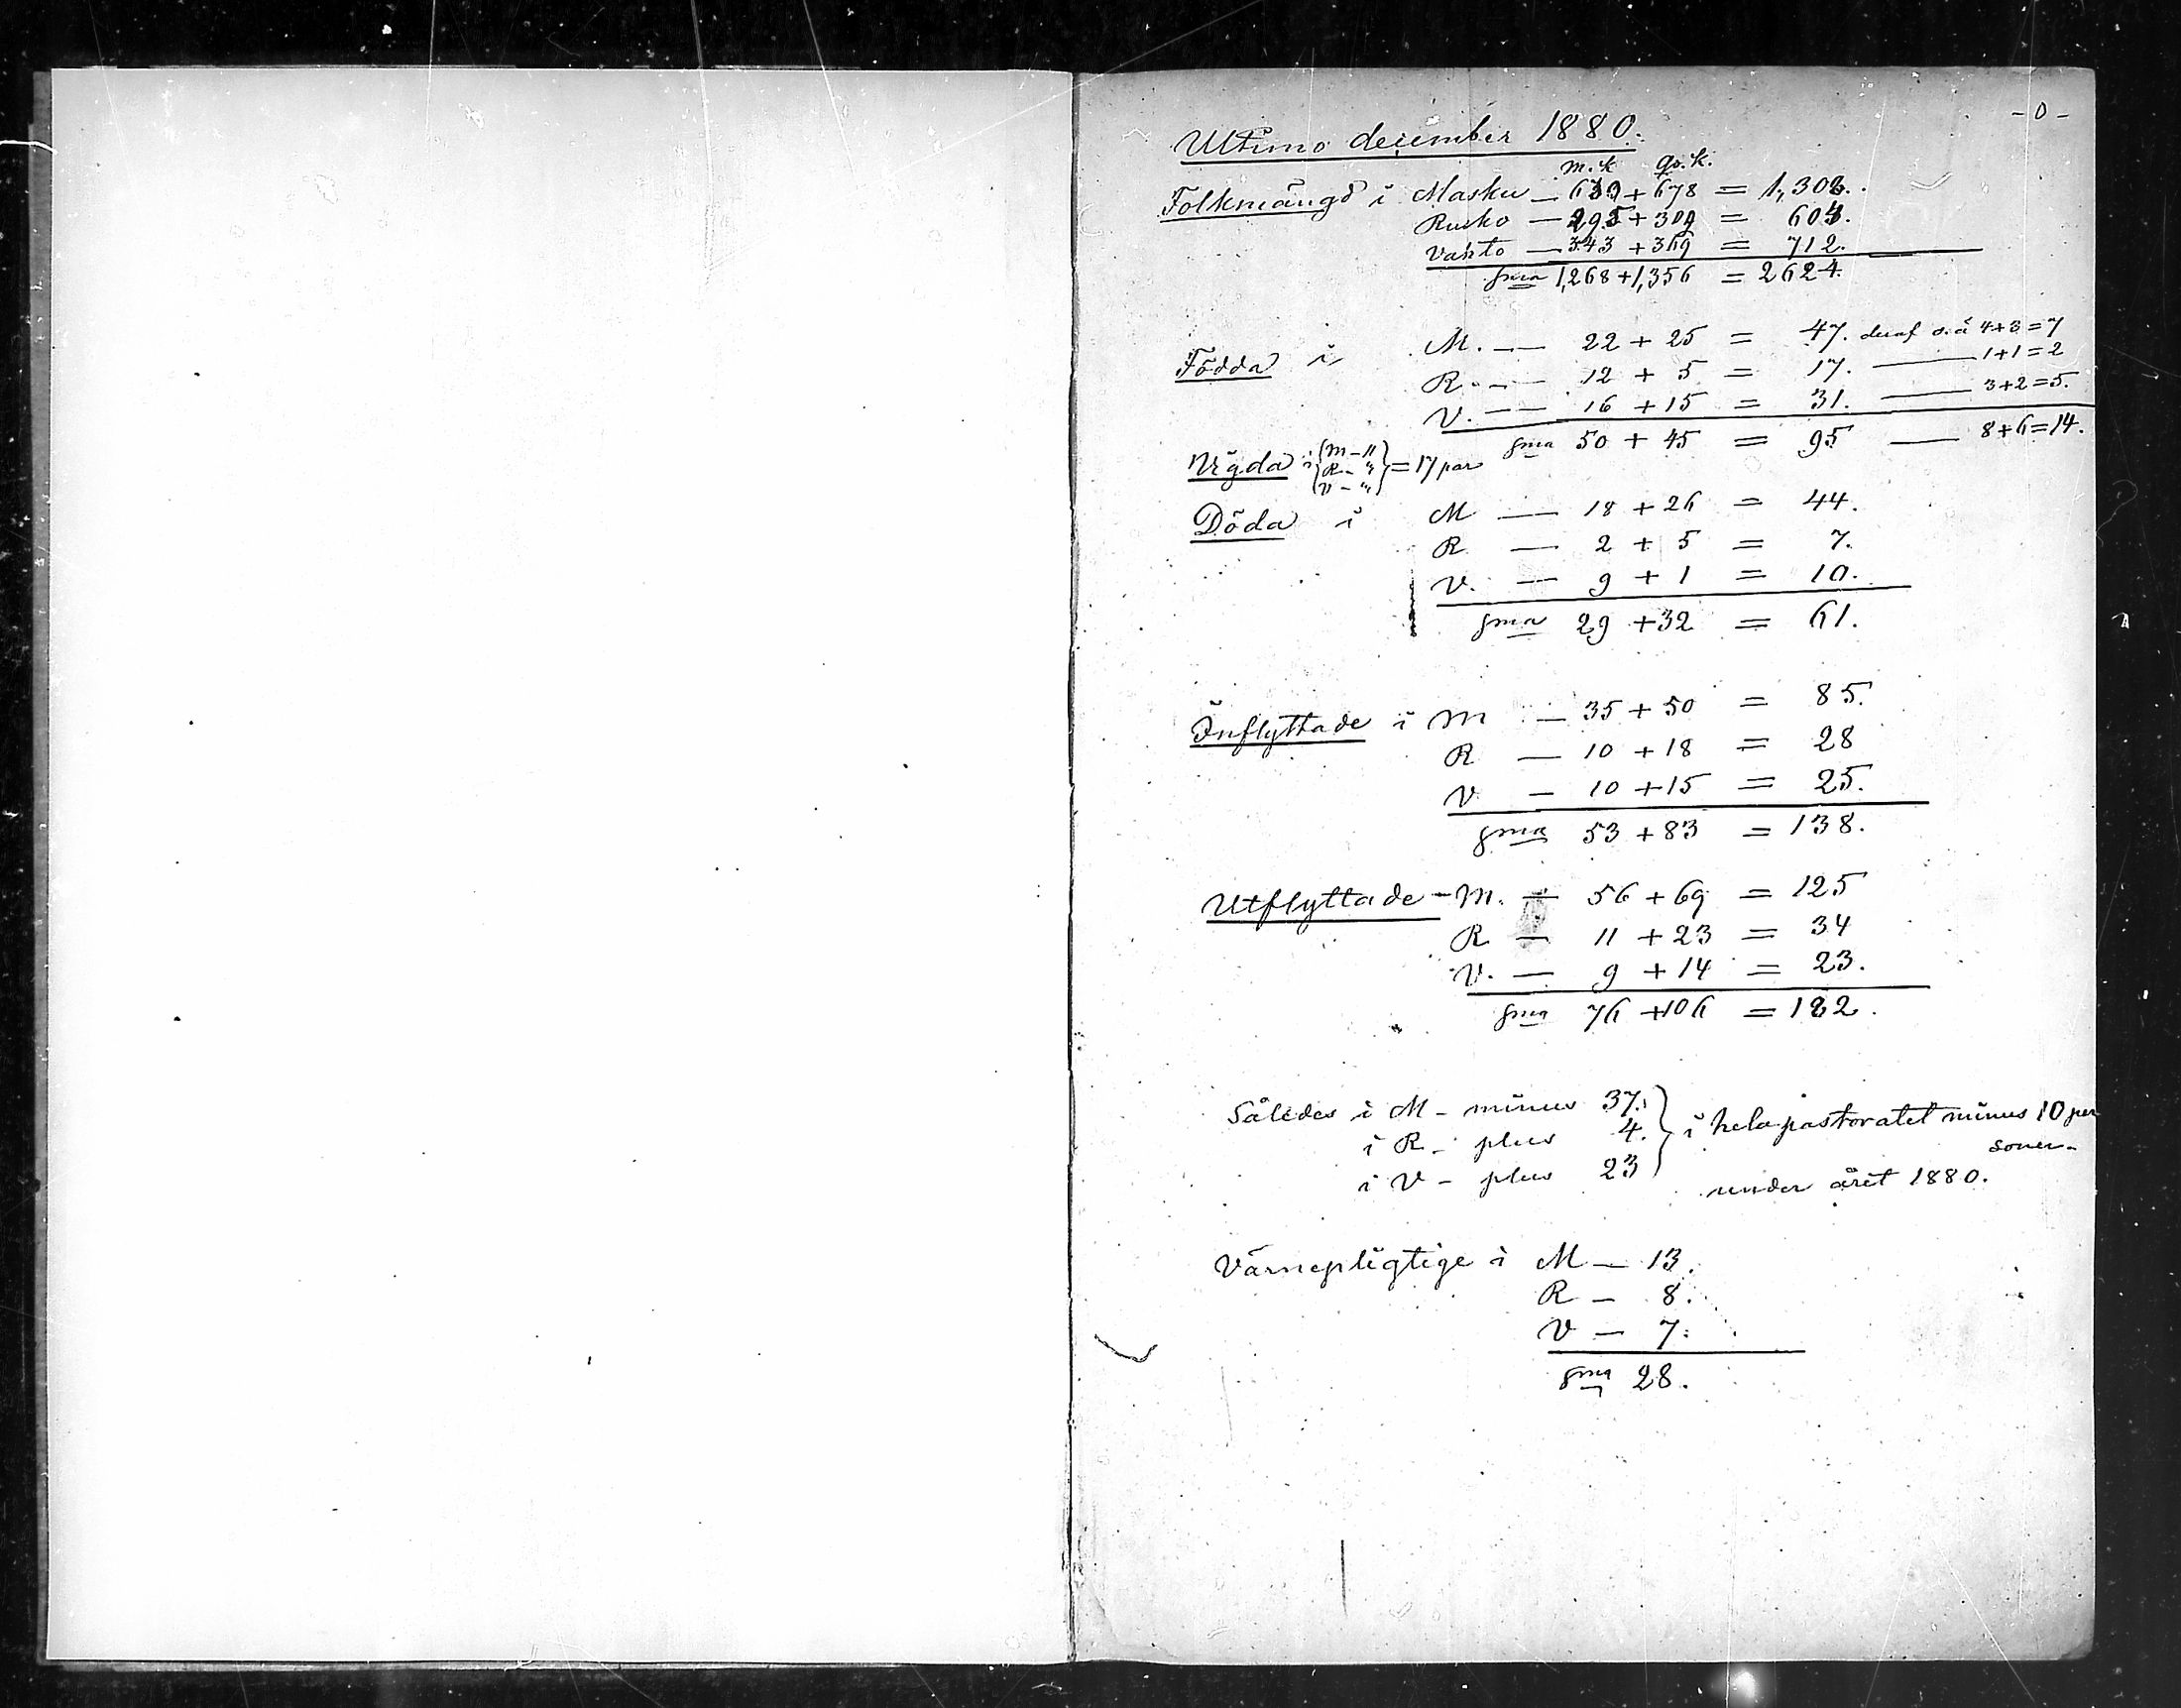 - 0 -
Ultimo december 1880.
m.k qv.k.
Folkmängd i Masku — 630 + 678 = 1,308.
Rusko — 295 + 309 = 604.
Vahto — 343 + 369 = 712.
sma 1,268 + 1,356 = 2624.
Födda i M. — 22 + 25 = 47. deraf o.ä 4+3=7
R. — 12 + 5 = 17. — 1+1=2
V. — 16 + 15 = 31. — 3+2=5.
sma 50 + 45 = 95 — 8+6=14.
Vigda i {M – 11 R – " V – "} = 17 par
Döda i M — 18 + 26 = 44.
R — 2 + 5 = 7.
V. — 9 + 1 = 10.
sma 29 + 32 = 61.
Inflyttade i M — 35 + 50 = 85.
R — 10 + 18 = 28
V — 10 + 15 = 25.
sma 53 + 83 = 138.
Utflyttade – M. — 56 + 69 = 125
R — 11 + 23 = 34
V. — 9 + 14 = 23.
sma 76 + 106 = 182.
Således i M – minus 37.
i R – plus 4. } i hela pastoratet minus 10 per
soner –
i V – plus 23
under året 1880.
Värnepligtige i M — 13.
R — 8.
V — 7.
sma 28.